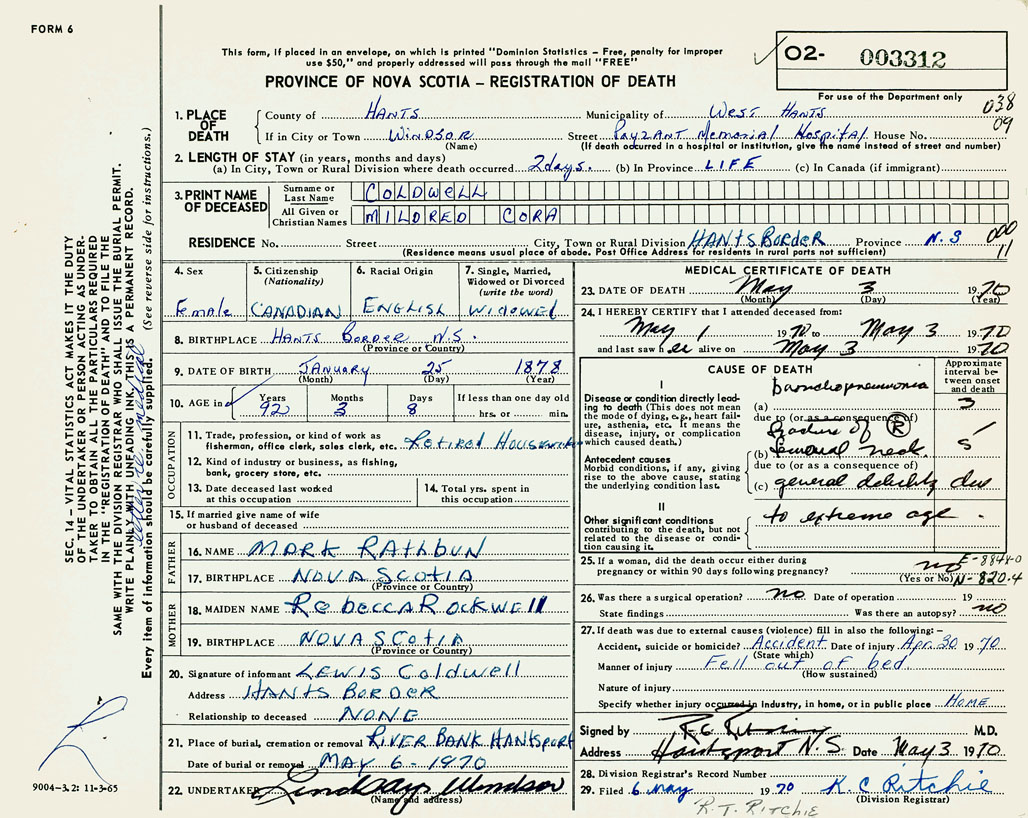 FORM 6
This form, if placed in an envelope, on which is printed "Dominion Statistics – Free, penalty for improper
use $50," and properly addressed will pass through the mail "FREE"
PROVINCE OF NOVA SCOTIA – REGISTRATION OF DEATH
02- 003312
For use of the Department only
038
09
1. PLACE OF DEATH
County of HANTS Municipality of WEST HANTS
If in City or Town WINDSOR Street Payzant Memorial Hospital House No.
(Name) (If death occurred in a hospital or institution, give the name instead of street and number)
2. LENGTH OF STAY (in years, months and days)
(a) In City, Town or Rural Division where death occurred 2 days. (b) In Province LIFE (c) In Canada (if immigrant)
3. PRINT NAME OF DECEASED
Surname or Last Name COLDWELL
All Given or Christian Names MILDRED CORA
RESIDENCE No. Street City, Town or Rural Division HANTS BORDER Province N.S
(Residence means usual place of abode. Post Office Address for residents in rural parts not sufficient)
000
11
4. Sex Female
5. Citizenship (Nationality) CANADIAN
6. Racial Origin ENGLISH
7. Single, Married, Widowed or Divorced (write the word) WIDOWED
8. BIRTHPLACE HANTS BORDER N.S.
(Province or Country)
9. DATE OF BIRTH JANUARY 25 1878
(Month) (Day) (Year)
10. AGE in Years 92 Months 3 Days 8 If less than one day old hrs. or min.
OCCUPATION
11. Trade, profession, or kind of work as fisherman, office clerk, sales clerk, etc. Retired Housewife
12. Kind of industry or business, as fishing, bank, grocery store, etc.
13. Date deceased last worked at this occupation
14. Total yrs. spent in this occupation
15. If married give name of wife or husband of deceased
FATHER
16. NAME MARK RATHBUN
17. BIRTHPLACE NOVA SCOTIA
(Province or Country)
MOTHER
18. MAIDEN NAME REBECCA ROCKWELL
19. BIRTHPLACE NOVA SCOTIA
(Province or Country)
20. Signature of informant LEWIS Coldwell
Address HANTS BORDER
Relationship to deceased NONE
21. Place of burial, cremation or removal RIVER BANK HANTSPORT
Date of burial or removal MAY 6 - 1970
22. UNDERTAKER Lindsay Windsor
(Name and address)
MEDICAL CERTIFICATE OF DEATH
23. DATE OF DEATH May 3 1970
(Month) (Day) (Year)
24. I HEREBY CERTIFY that I attended deceased from:
May 1 1970 to May 3 1970
and last saw her alive on May 3 1970
CAUSE OF DEATH
Approximate interval between onset and death
I
Disease or condition directly leading to death (This does not mean the mode of dying, e.g., heart failure, asthenia, etc. It means the disease, injury, or complication which caused death.)
(a) bronchopneumonia 3
due to (or as a consequence of)
Antecedent causes
Morbid conditions, if any, giving rise to the above cause, stating the underlying condition last.
(b) fracture of (R) femoral neck 5
due to (or as a consequence of)
(c) general debility due
II
Other significant conditions contributing to the death, but not related to the disease or condition causing it.
to extreme age.
25. If a woman, did the death occur either during pregnancy or within 90 days following pregnancy? no
(Yes or No)
E-884-0
N-820.4
26. Was there a surgical operation? no Date of operation 19
State findings Was there an autopsy? no
27. If death was due to external causes (violence) fill in also the following:–
Accident, suicide or homicide? Accident Date of injury Apr. 30 1970
(State which)
Manner of injury Fell out of bed
(How sustained)
Nature of injury
Specify whether injury occurred in Industry, in home, or in public place HOME
Signed by M.D.
Address Hantsport N.S. Date May 3 1970
28. Division Registrar's Record Number
29. Filed 6 May 1970 K. C Ritchie
(Division Registrar)
R. T. RITCHIE
SEC. 14 – VITAL STATISTICS ACT MAKES IT THE DUTY
OF THE UNDERTAKER OR PERSON ACTING AS UNDER-
TAKER TO OBTAIN ALL THE PARTICULARS REQUIRED
IN THE "REGISTRATION OF DEATH" AND TO FILE THE
SAME WITH THE DIVISION REGISTRAR WHO SHALL ISSUE THE BURIAL PERMIT.
WRITE PLAINLY WITH UNFADING INK, THIS IS A PERMANENT RECORD.
Every item of information should be carefully supplied. (See reverse side for instructions.)
9004-3.2: 11-3-65